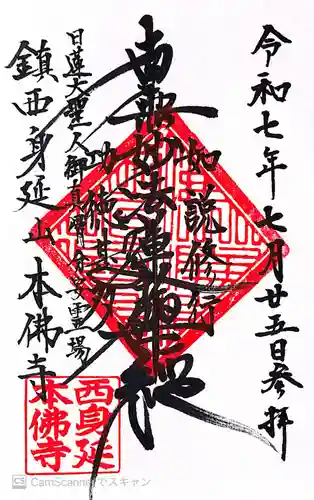 令和七年七月廿五日参拝
如説修行
南無妙法蓮華経
功徳甚多
日蓮大聖人御真骨分与霊場
鎮西身延山本佛寺
西身延
本佛寺
CS CamScannerでスキャン